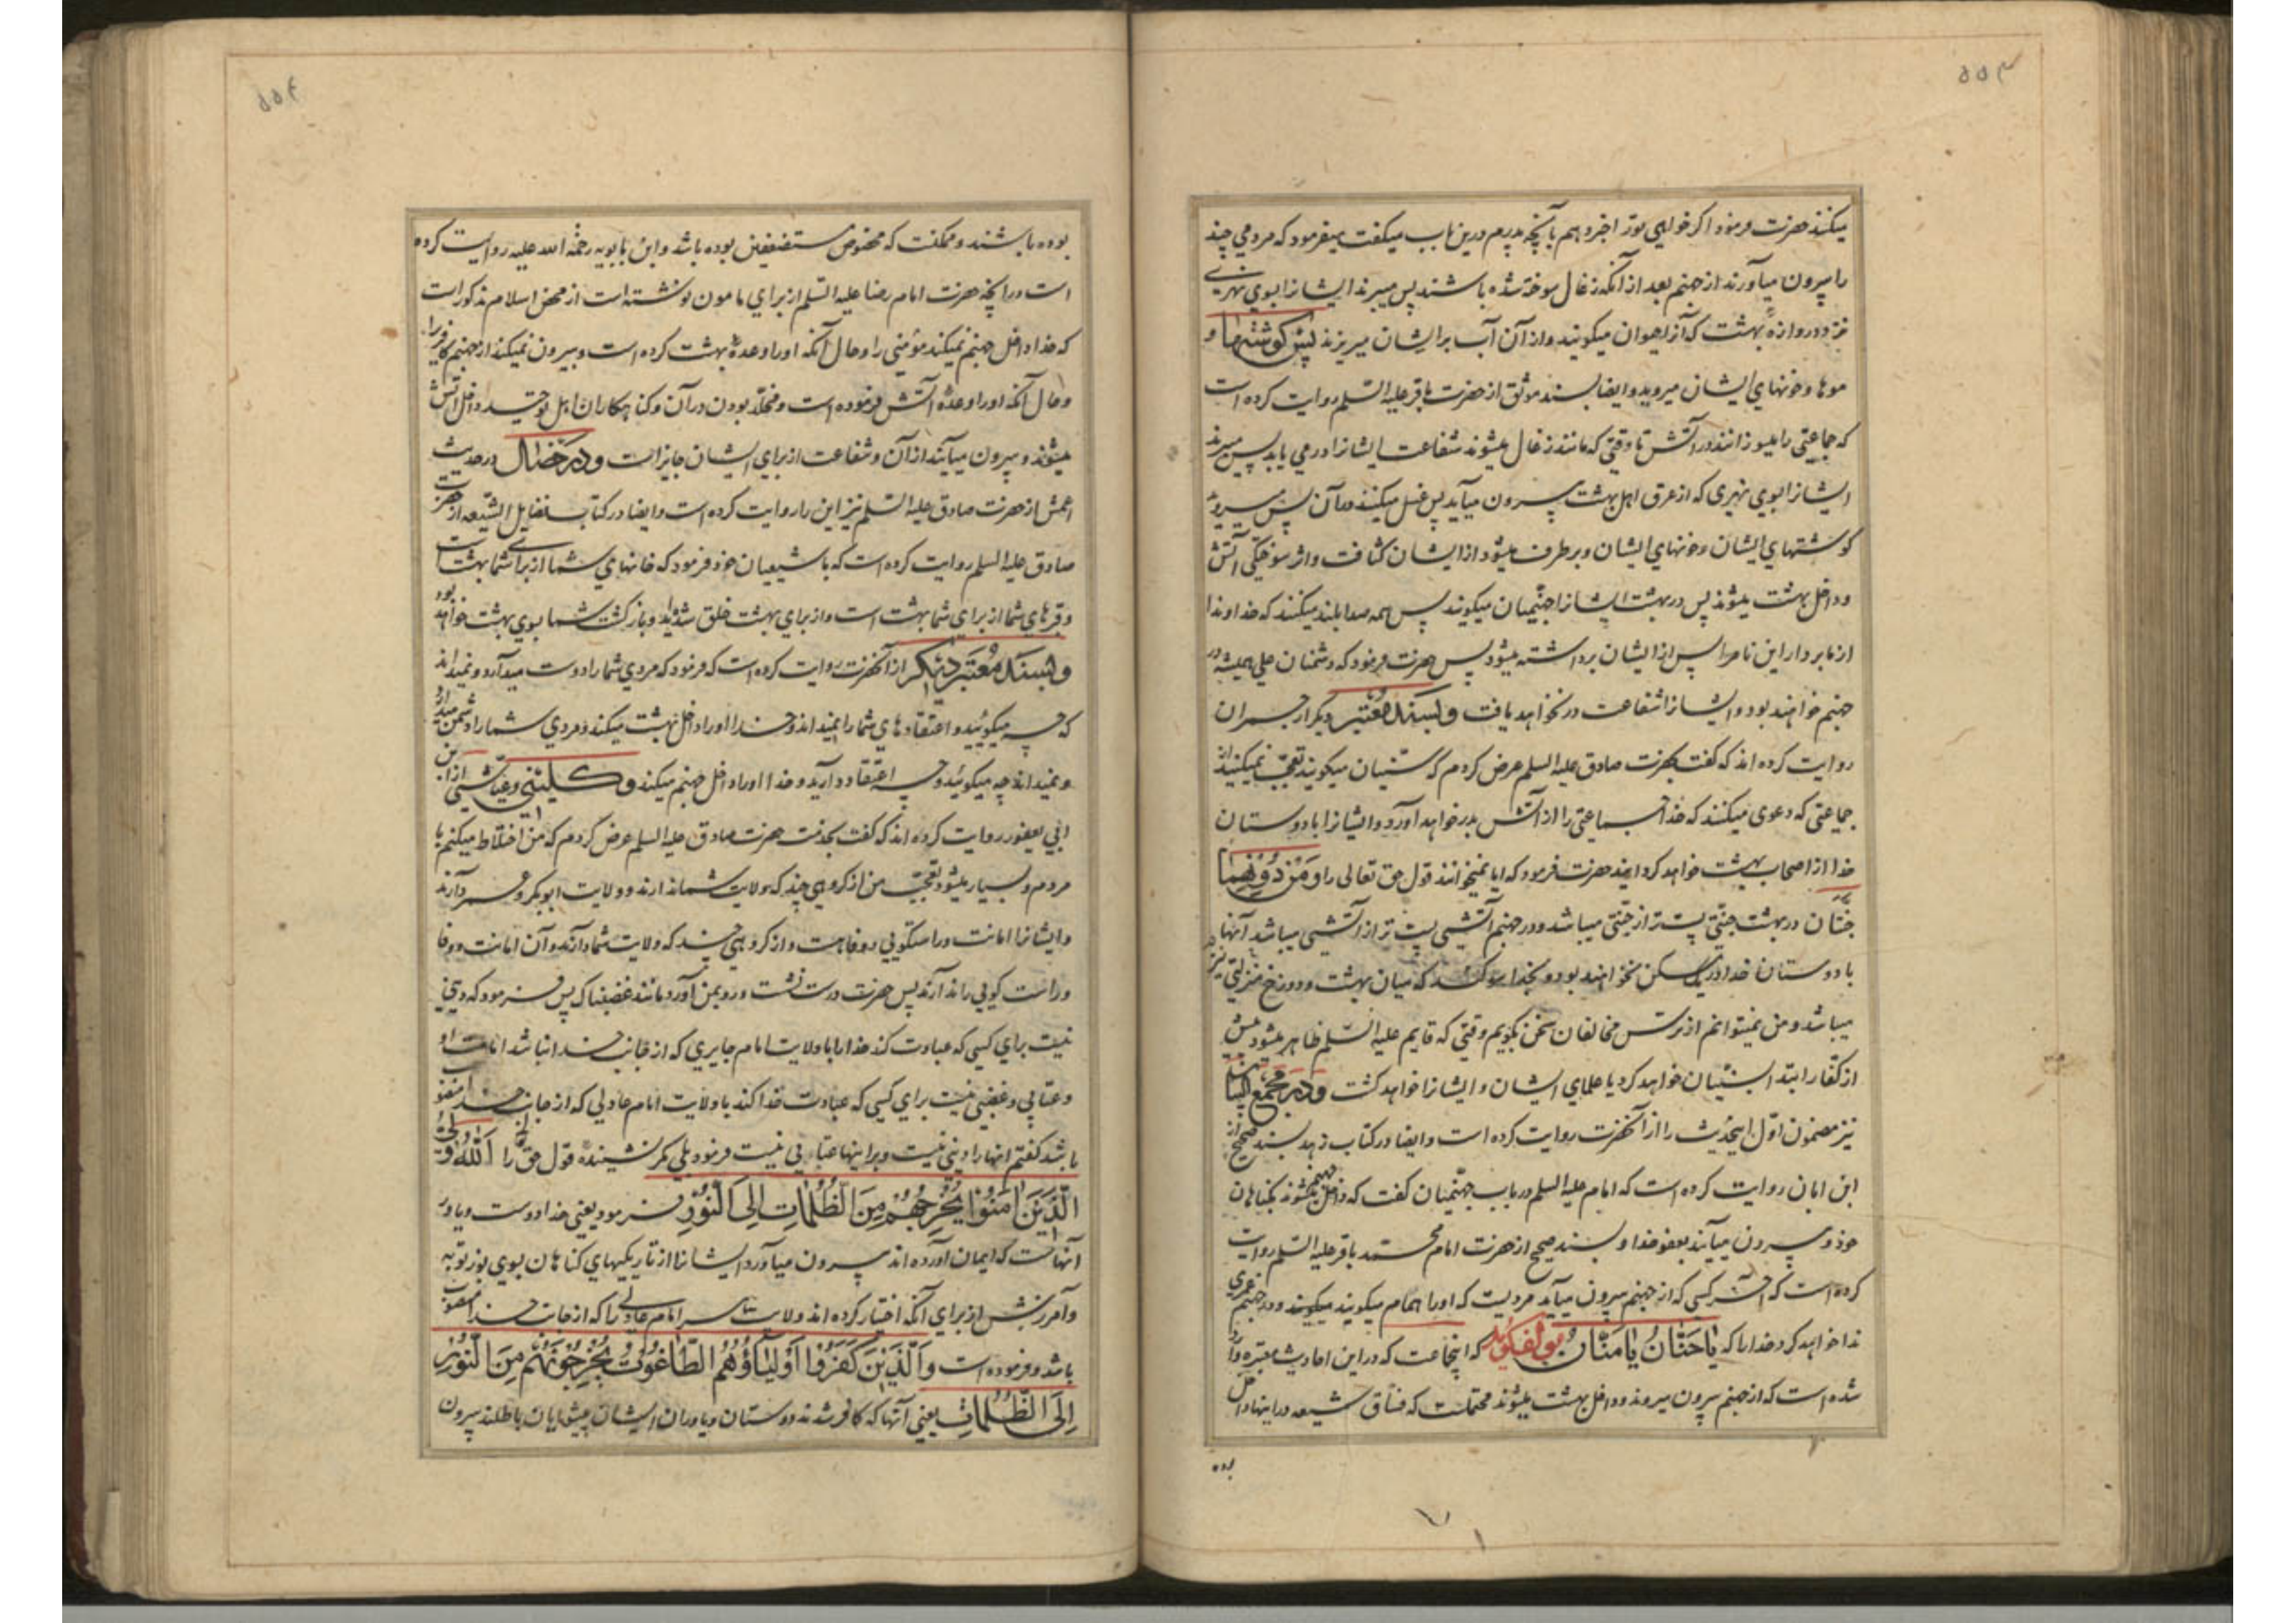 ۵۵۳
میکنند حضرت فرمود اکر خواهی تورا خبر دهم بآنچه پدرم درین باب میکفت میفرمود که مردمی چند
را بیرون میآورند از جهنم بعد از آنکه زغال سوخته شده باشند پس میبرند ایشانرا بسوی نهری
نزد دروازه بهشت که آنرا حیوان میکویند و از آن آب بر ایشان میریزند پس کوشتها و
موها و خونهای ایشان میروید و ایضا بسند موثق از حضرت باقر علیه السلم روایت کرده است
که جماعتی را میسوزانند در آتش تا وقتی که مانند زغال میشوند شفاعت ایشانرا در می یابد پس میبرند
ایشانرا بسوی نهری که از عرق اهل بهشت بیرون میآید پس غسل میکنند در آن پس میروید
کوشتهای ایشان و خونهای ایشان و برطرف میشود از ایشان کثافت و اثر سوختکی آتش
و داخل بهشت میشوند پس در بهشت ایشانرا جهنمیان میکویند پس همه صدا بلند میکنند که خداوندا
از ما بردار این نام را پس از ایشان برداشته میشود پس حضرت فرمود که دشمنان علی همیشه در
جهنم خواهند بود و ایشانرا شفاعت در نخواهد یافت و بسند معتبر دیکر از حمران
روایت کرده اند که کفت بحضرت صادق علیه السلم عرض کردم که سنیان میکویند تعجب نمیکنید از
جماعتی که دعوی میکنند که خدا جماعتی را از آتش بدر خواهد آورد و ایشانرا با دوستان
خدا از اصحاب بهشت خواهد کردانید حضرت فرمود که ایا نمیخوانند قول حق تعالی را و من دونهما
جنتان در بهشت جنتی پست تر از جنتی میباشد و در جهنم آتشی پست تر از آتشی میباشد آنها
با دوستان خدا در یک مسکن نخواهند بود و بخدا سوکند که میان بهشت و دوزخ منزلتی نیز
میباشد و من نمیتوانم از ترس مخالفان سخن بکویم وقتی که قایم علیه السلم ظاهر میشود پیش
از کفار ابتدا بسنیان خواهد کرد با علمای ایشان و ایشانرا خواهد کشت و در مجمع البیان
نیز مضمون اول اینحدیث را از آنحضرت روایت کرده است و ایضا در کتاب زهد بسند صحیح از
ابن ابان روایت کرده است که امام علیه السلم در باب جهنمیان کفت که داخل جهنم میشوند بکناهان
خود و بیرون میآیند بعفو خدا و بسند صحیح از حضرت امام محمد باقر علیه السلم روایت
کرده است که آخر کسی که از جهنم بیرون میآید مردیست که اورا همام میکویند میکویند و در جهنم عمری
ندا خواهد کرد خدا را که یا حنان یا منان مولف کوید که اینجماعت که در این احادیث معتبره وارد
شده است که از جهنم بیرون میروند و داخل بهشت میشوند محتملست که فساق شیعه در اینها داخل
بوده
۵۵۴
بوده باشند و ممکنست که مخصوص مستضعفین بوده باشد و ابن بابویه رحمة الله علیه روایت کرده
است در آنچه حضرت امام رضا علیه السلم از برای مامون نوشته است از محض اسلام مذکور است
که خدا داخل جهنم نمیکند مؤمنی را و حال آنکه اورا وعدهٔ بهشت کرده است و بیرون نمیکند از جهنم کافریرا
و حال آنکه اورا وعدهٔ آتش فرموده است و مخلد بودن در آن و کناهکاران اهل توحید داخل آتش
میشوند و بیرون میآیند از آن و شفاعت از برای ایشان جایز است و در خصال در حدیث
اعمش از حضرت صادق علیه السلم نیز این را روایت کرده است و ایضا در کتاب فضایل الشیعه از حضرت
صادق علیه السلم روایت کرده است که با شیعیان خود فرمود که خانهای شما از برای شما بهشت است
و قبرهای شما از برای شما بهشت است و از برای بهشت خلق شده اید و بازکشت شما بسوی بهشت خواهد بود
و بسند معتبر دیکر از آنحضرت روایت کرده است که فرمود که مردی شما را دوست میدارد و نمیداند
که چه میکوئید و اعتقادهای شما را نمیداند و خدا اورا داخل بهشت میکند و مردی شما را دشمن میدارد
و نمیداند چه میکوئید و چه اعتقاد دارید و خدا اورا داخل جهنم میکند و کلینی و عیاشی از ابن
ابی یعفور روایت کرده اند که کفت بخدمت حضرت صادق علیه السلم عرض کردم که من اختلاط میکنم با
مردم و بسیار میشود تعجب من از کروهی چند که ولایت شما ندارند و ولایت ابوبکر و عمر دارند
و ایشانرا امانت و راستکویی و وفا هست و از کروهی چند که ولایت شما دارند و آن امانت و وفا
و راست کویی را ندارند پس حضرت درست نشست و رو بمن آورد مانند غضبناک پس فرمود که دینی
نیست برای کسی که عبادت کند خدا را با ولایت امام جایری که از جانب خدا نباشد امامت او
و عتابی و غضبی نیست برای کسی که عبادت خدا کند با ولایت امام عادلی که از جانب خدا منصوب
باشد کفتم آنها را دینی نیست و بر اینها عتابی نیست فرمود بلی مکر نشنیدهٔ قول حق را الله ولی
الذین امنوا یخرجهم من الظلمات الی النور فرمود یعنی خدا دوست و یاور
آنهاست که ایمان آورده اند بیرون میآورد ایشانرا از تاریکیهای کناهان بسوی نور توبه
و آمرزش از برای آنکه اختیار کرده اند ولایت هر امام عادلی را که از جانب خدا منصوب
باشد و فرموده است والذین کفروا اولیاؤهم الطاغوت یخرجونهم من النور
الی الظلمات یعنی آنها که کافر شدند دوستان و یاوران ایشان پیشوایان باطلند بیرون